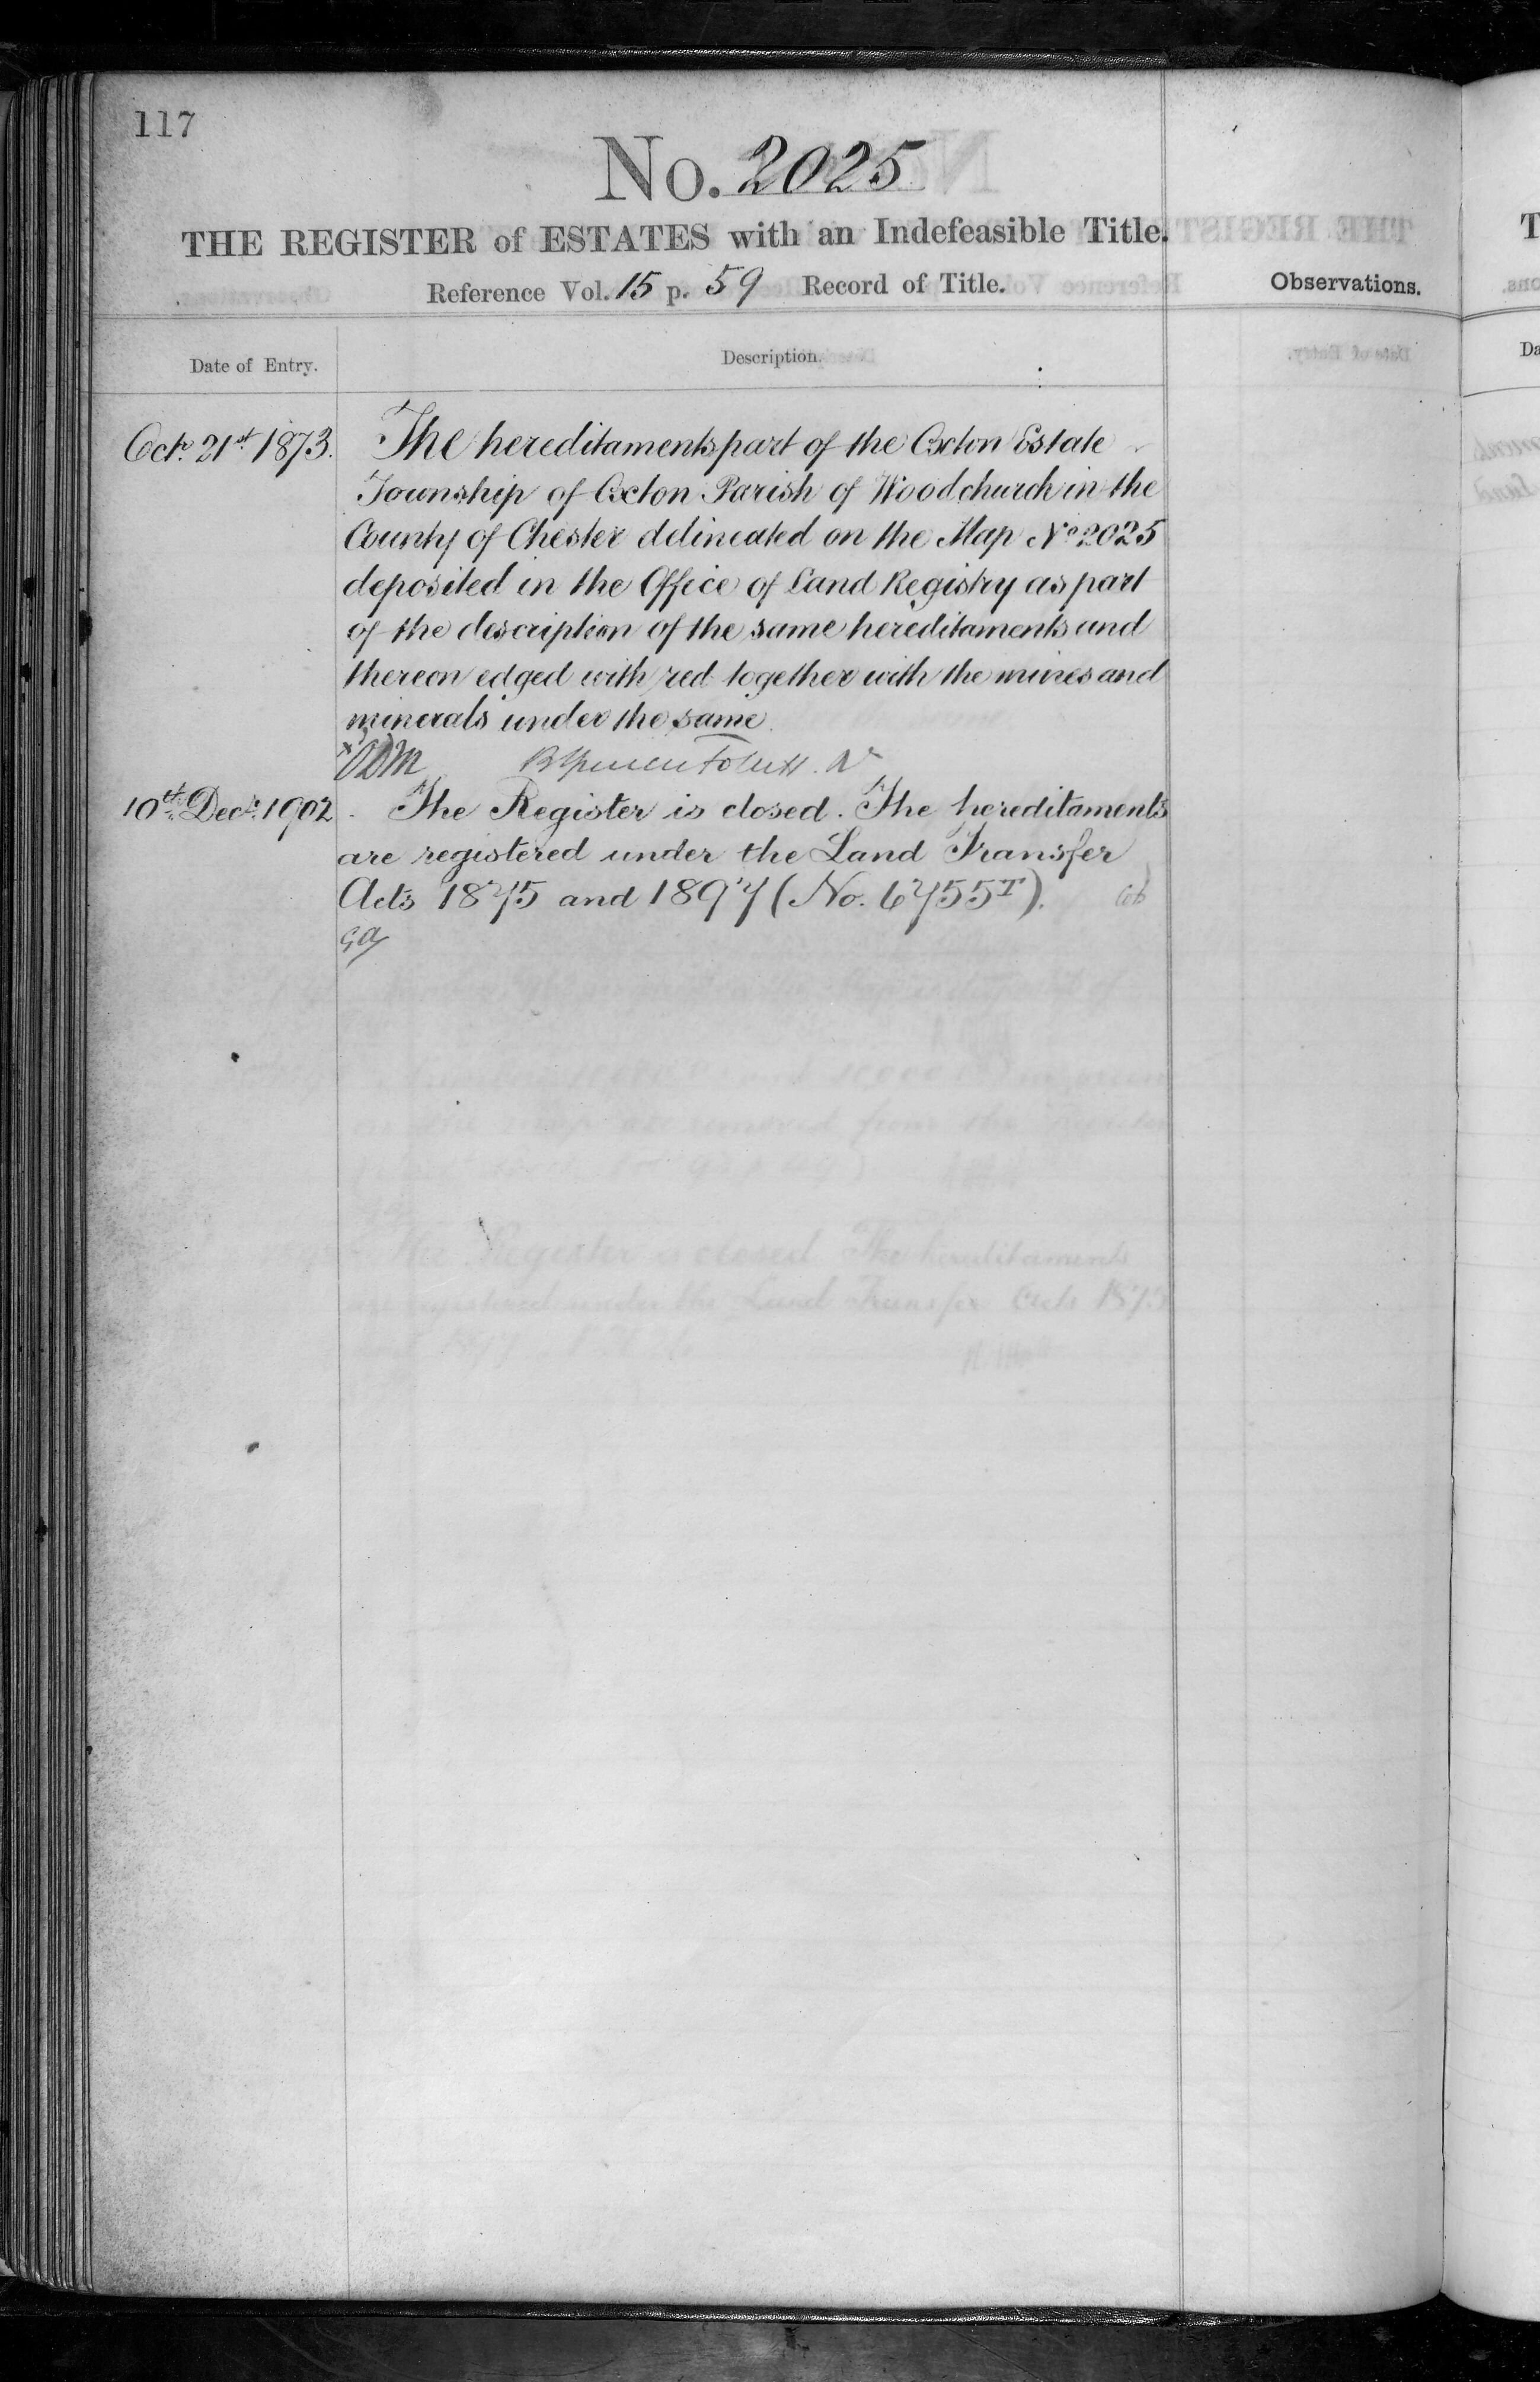 117
No. 2025
THE REGISTER of ESTATES with an Indefeasible Title.
Reference Vol. 15 p. 59 Record of Title.
Observations.
Date of Entry.
Description.
Octr. 21st 1873. The hereditaments part of the Oxton Estate
Township of Oxton Parish of Woodchurch in the
County of Chester delineated on the Map No 2025
deposited in the Office of Land Registry as part
of the description of the same hereditaments and
thereon edged with red together with the mines and
minerals under the same
10th Decr. 1902. The Register is closed. The hereditaments
are registered under the Land Transfer
Acts 1875 and 1897 (No. 6755T).